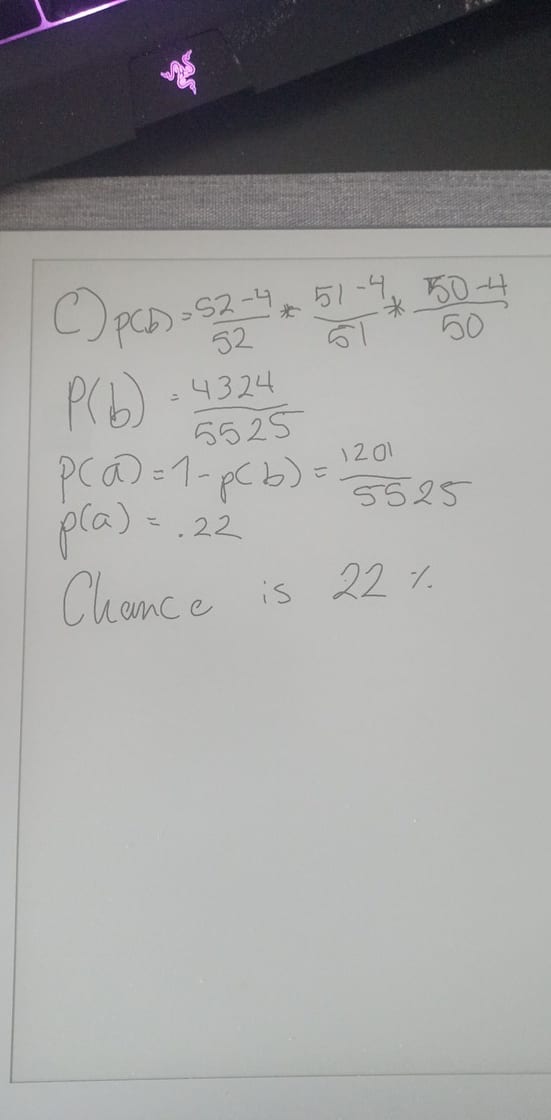 C) p(b) = 52-4/52 * 51-4/51 * 50-4/50
P(b) = 4324/5525
p(a) = 1 - p(b) = 1201/5525
p(a) = .22
Chance is 22 %